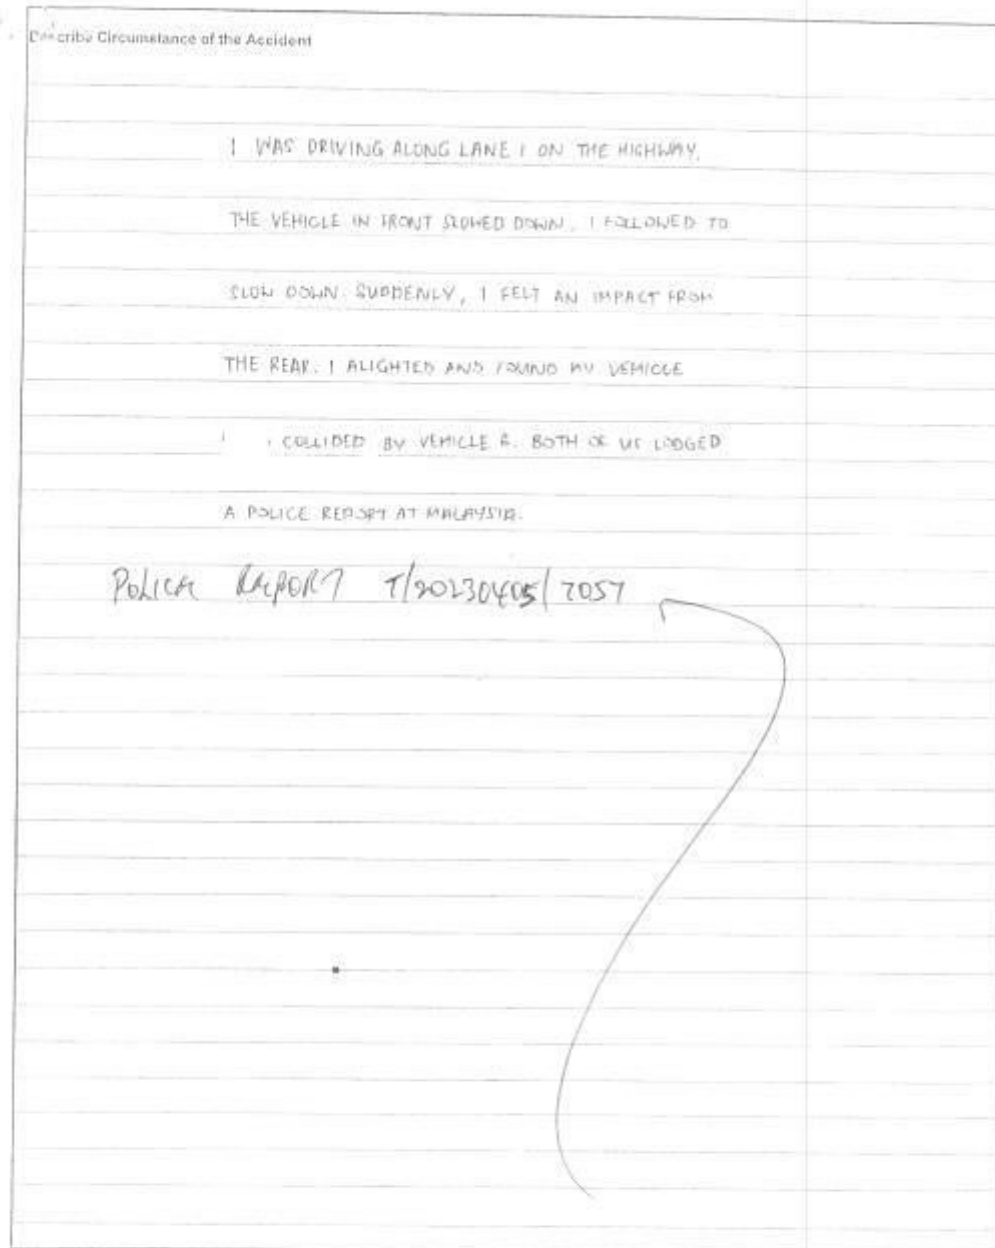 Describe Circumstance of the Accident
I WAS DRIVING ALONG LANE 1 ON THE HIGHWAY.
THE VEHICLE IN FRONT SLOWED DOWN. I FOLLOWED TO
SLOW DOWN. SUDDENLY, I FELT AN IMPACT FROM
THE REAR. I ALIGHTED AND FOUND MY VEHICLE
COLLIDED BY VEHICLE B. BOTH OF US LODGED
A POLICE REPORT AT MALAYSIA.
POLICE REPORT T/20230405/7057